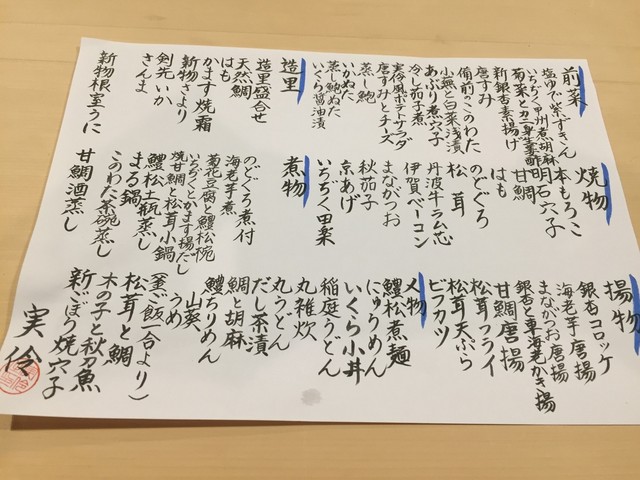 前菜
塩ゆで紫ずきん
いちぢく甲州煮胡麻
菊菜とカニ生姜酢
新銀杏素揚げ
唐すみ
備前このわた
小蕪と白菜浅漬
あぶり煮穴子
冷し茄子煮
実伶風ポテトサラダ
唐すみとチーズ
蒸し鮑
いかぬた
蒸し鮑ぬた
いくら醤油漬
造里
造里盛合せ
天然鯛
はも
新物さより
かます焼霜
剣先いか
さんま
新物根室うに
焼物
本もろこ
明石穴子
甘鯛
はも
のどぐろ
松茸
丹波牛ラム芯
伊賀ベーコン
まながつお
秋茄子
京あげ
いちぢく田楽
煮物
のどぐろ煮付
海老芋煮
菊花豆腐と鱧松椀
いちぢくとかます揚だし
焼甘鯛と松茸小鍋
鱧松土瓶蒸し
まる鍋
このわた茶碗蒸し
甘鯛酒蒸し
揚物
銀杏コロッケ
海老芋唐揚
まながつお唐揚
銀杏と車海老かき揚
甘鯛唐揚
松茸フライ
松茸天ぷら
ビフカツ
〆物
鱧松煮麺
にゅうめん
いくら小丼
稲庭うどん
丸雑炊
丸うどん
だし茶漬
鯛と胡麻
鱧ちりめん
山葵
うめ
（釜ご飯一合より）
松茸と鯛
木の子と秋刀魚
新ごぼう焼穴子
実伶